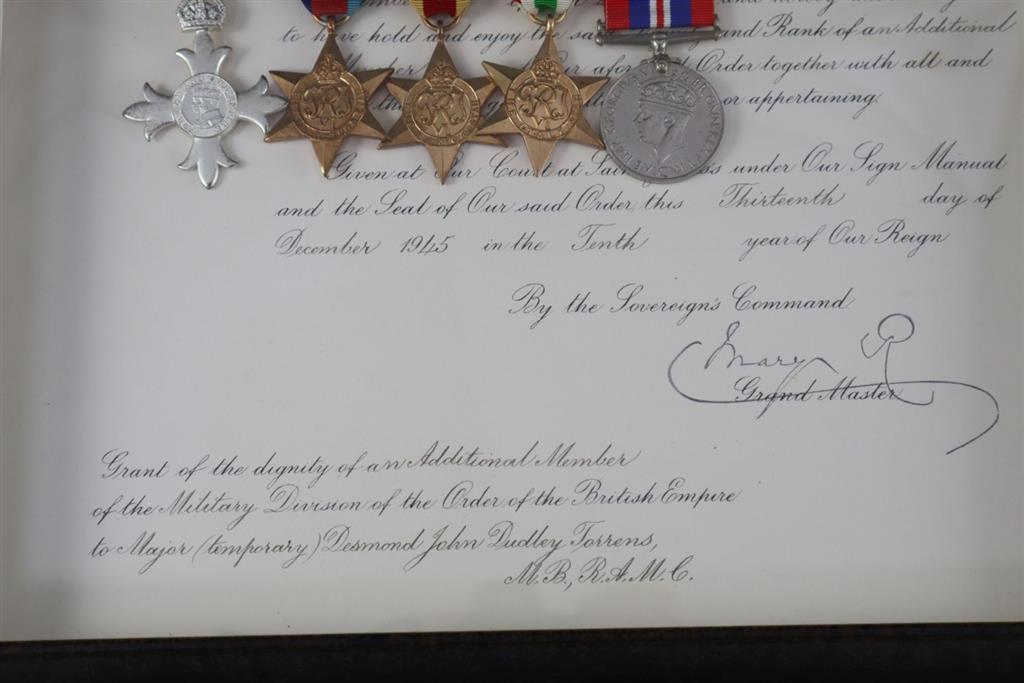 to have hold and enjoy the said and Rank of an Additional
Member Our aforesaid Order together with all and
or appertaining.
Given at Our Court at Saint under Our Sign Manual
and the Seal of Our said Order, this Thirteenth day of
December 1945 in the Tenth year of Our Reign
By the Sovereign's Command
Mary R
Grand Master
Grant of the dignity of an Additional Member
of the Military Division of the Order of the British Empire
to Major (temporary) Desmond John Dudley Torrens,
M.B., R.A.M.C.